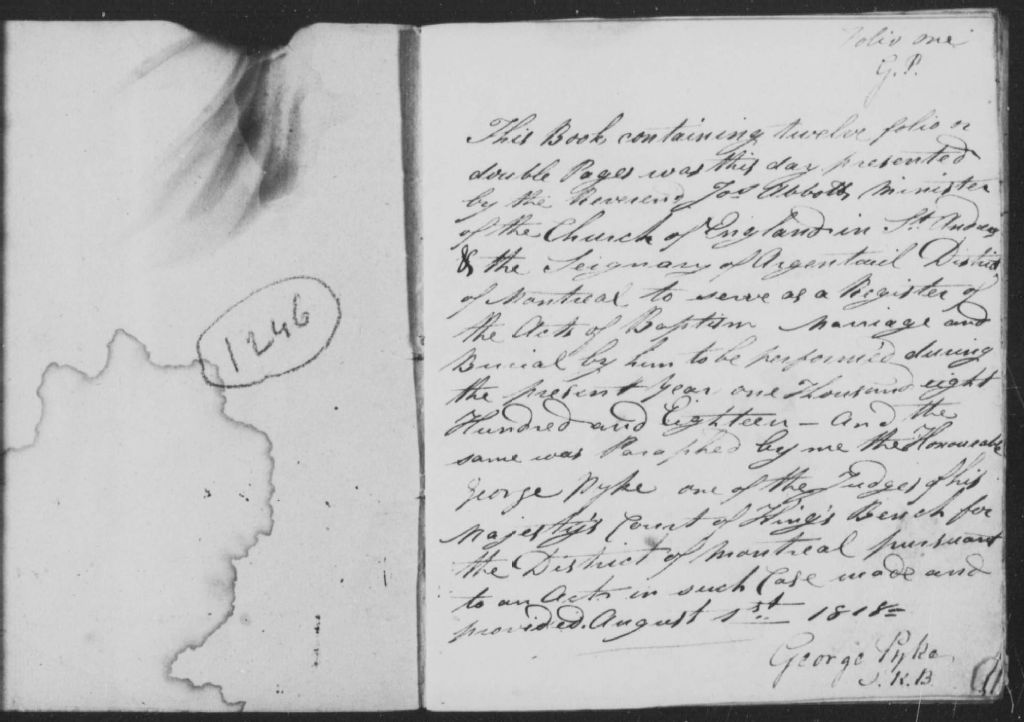 1246
Folio one
G. P.
This Book containing twelve folio or
double Pages was this day presented
by the Reverend Jos Abbott, Minister
of the Church of England in St. Andrews
& the Seignary of Argentail District
of Montreal to serve as a Register of
the Acts of Baptism Marriage and
Burial by him to be performed during
the present year one Thousand eight
Hundred and Eighteen - And the
same was Paraphed by me the Honourable
George Pyke one of the Judges of his
Majesty's Court of King's Bench for
the District of Montreal pursuant
to an Act in such Case made and
provided. August 1st 1818
George Pyke
J. K. B.